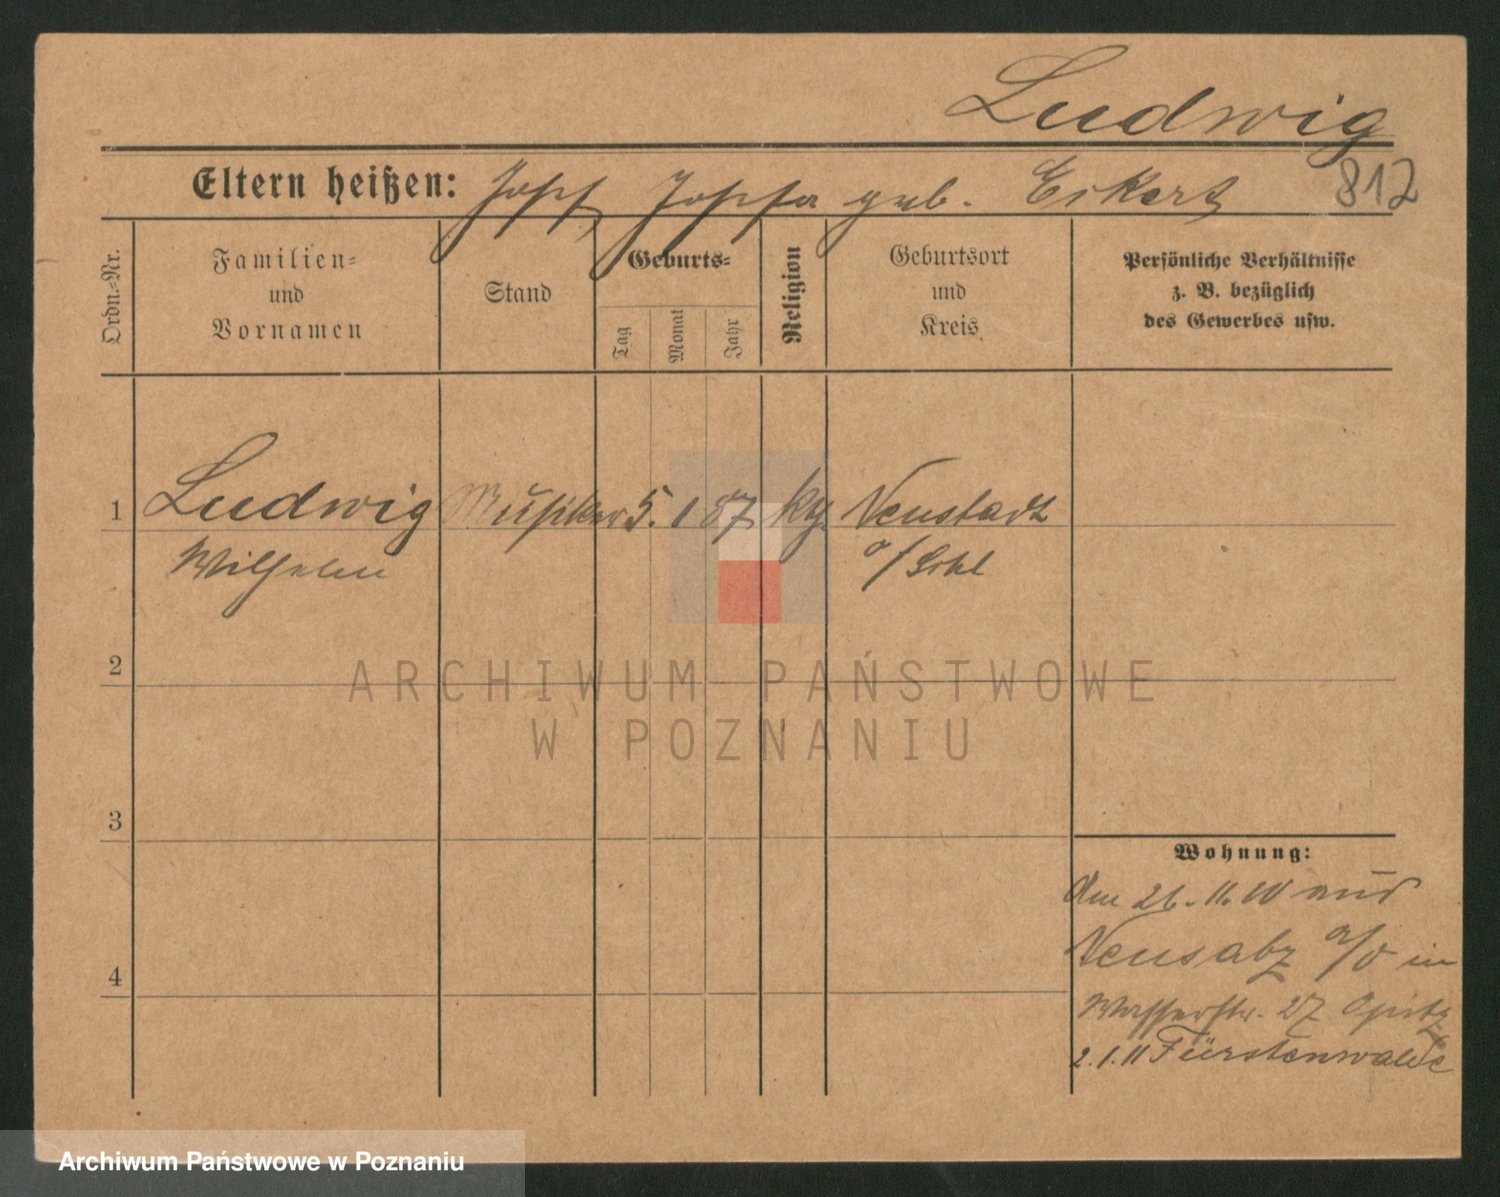 Ludwig
812
Eltern heißen: Josef, Josefa geb. Eckert
Ordn.-Nr.
Familien-
und
Vornamen
Stand
Geburts-
Tag
Monat
Jahr
Religion
Geburtsort
und
Kreis
Persönliche Verhältnisse
z. B. bezüglich
des Gewerbes usw.
1 Ludwig Musiker 5. 1 87 kg. Neustadt
Wilhelm
2
ARCHIWUM PAŃSTWOWE
W POZNANIU
3
Wohnung:
Am 26. 11. 10 aus
Neusalz a/O in
4
Wasserstr. 27 Opitz
2. 1. 11 Fürstenwalde
Archiwum Państwowe w Poznaniu